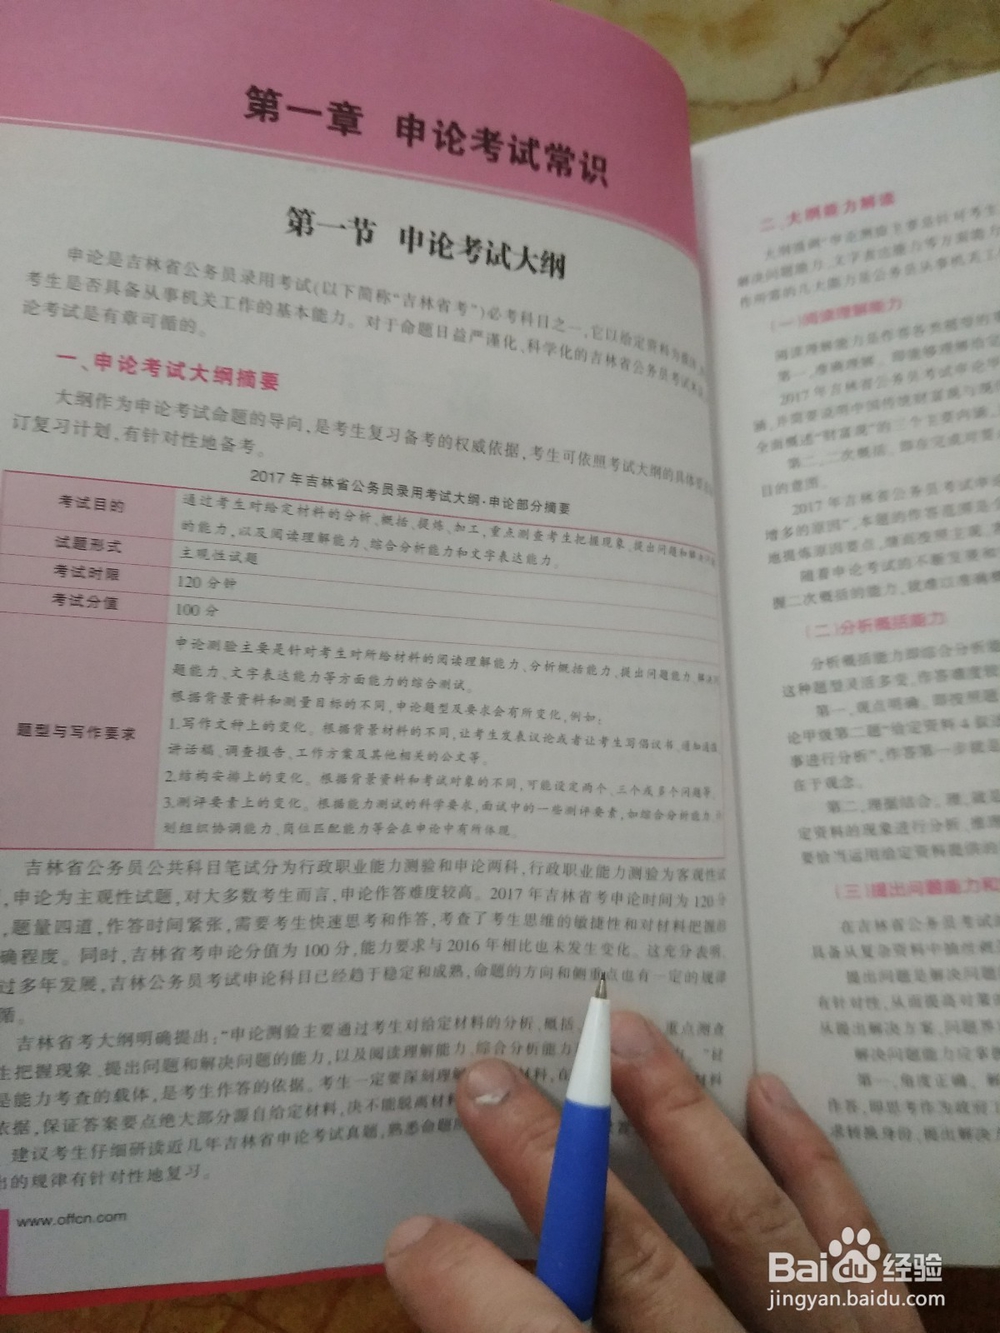 第一章 申论考试常识
第一节 申论考试大纲
申论是吉林省公务员录用考试(以下简称“吉林省考”)必考科目之一,它以给定资料为
考生是否具备从事机关工作的基本能力。对于命题日益严谨化、科学化的吉林省公务员考试
论考试是有章可循的。
一、申论考试大纲摘要
大纲作为申论考试命题的导向,是考生复习备考的权威依据,考生可依照考试大纲的具体
订复习计划,有针对性地备考。
2017年吉林省公务员录用考试大纲·申论部分摘要
考试目的
通过考生对给定材料的分析、概括、提炼、加工,重点测查考生把握现象、提出问题和解决
的能力,以及阅读理解能力、综合分析能力和文字表达能力。
试题形式
主观性试题
考试时限
120分钟
考试分值
100分
题型与写作要求
申论测验主要是针对考生对所给材料的阅读理解能力、分析概括能力、提出问题能力、解决
题能力、文字表达能力等方面能力的综合测试。
根据背景资料和测量目标的不同,申论题型及要求会有所变化,例如:
1.写作文种上的变化。根据背景材料的不同,让考生发表议论或者让考生写倡议书、通知通报
讲话稿、调查报告、工作方案及其他相关的公文等。
2.结构安排上的变化。根据背景资料和考试对象的不同,可能设定两个、三个或多个问题等。
3.测评要素上的变化。根据能力测试的科学要求,面试中的一些测评要素,如综合分析能力
划组织协调能力、岗位匹配能力等会在申论中有所体现。
吉林省公务员公共科目笔试分为行政职业能力测验和申论两科,行政职业能力测验为客观性试
,申论为主观性试题,对大多数考生而言,申论作答难度较高。2017年吉林省考申论时间为120分
,题量四道,作答时间紧张,需要考生快速思考和作答,考查了考生思维的敏捷性和对材料把握
确程度。同时,吉林省考申论分值为100分,能力要求与2016年相比也未发生变化。这充分表明,
过多年发展,吉林公务员考试申论科目已经趋于稳定和成熟,命题的方向和侧重点也有一定的规律
循。
吉林省考大纲明确提出:“申论测验主要通过考生对给定材料的分析、概括、 重点测查
生把握现象、提出问题和解决问题的能力,以及阅读理解能力、综合分析能力 ”材
是能力考查的载体,是考生作答的依据。考生一定要深刻理解 材料,在 材料
依据,保证答案要点绝大部分源自给定材料,决不能脱离材料
建议考生仔细研读近几年吉林省申论考试真题,熟悉命题
出的规律有针对性地复习。
www.offcn.com
二、大纲能力解读
大纲强调“申论测验主要是针对考生
解决问题能力、文字表达能力等方面能力
作所需的几大能力是公务员从事机关工
(一)阅读理解能力
阅读理解能力是作答各类题型的
第一,准确理解。即能够理解给定
2017年吉林省公务员考试申论甲
涵,并需要说明中国传统财富观与现
全面概述“财富观”的三个主要内涵,
第二,二次概括。即在完成对要点
目的意图。
2017年吉林省公务员考试申论
增多的原因”,本题的作答范围是全
地提炼原因要点,继而按照主观、客
随着申论考试的不断发展和
握二次概括的能力,就难以准确
(二)分析概括能力
分析概括能力即综合分析能
这种题型灵活多变,作答难度较
第一,观点明确。即按照题
论甲级第二题“给定资料4叙述
事进行分析”,作答第一步就是
在于观念。
第二,理据结合。理,就是
定资料的现象进行分析、推理
要恰当运用给定资料提供的
(三)提出问题能力和
在吉林省公务员考试
具备从复杂资料中抽丝剥
提出问题是解决问题
有针对性,从而提高对策的
从提出解决方案,问题界
解决问题能力应掌握
第一,角度正确。解
作答,即思考作为政府
求转换身份,提出解决
Baidu 经验
jingyan.baidu.com